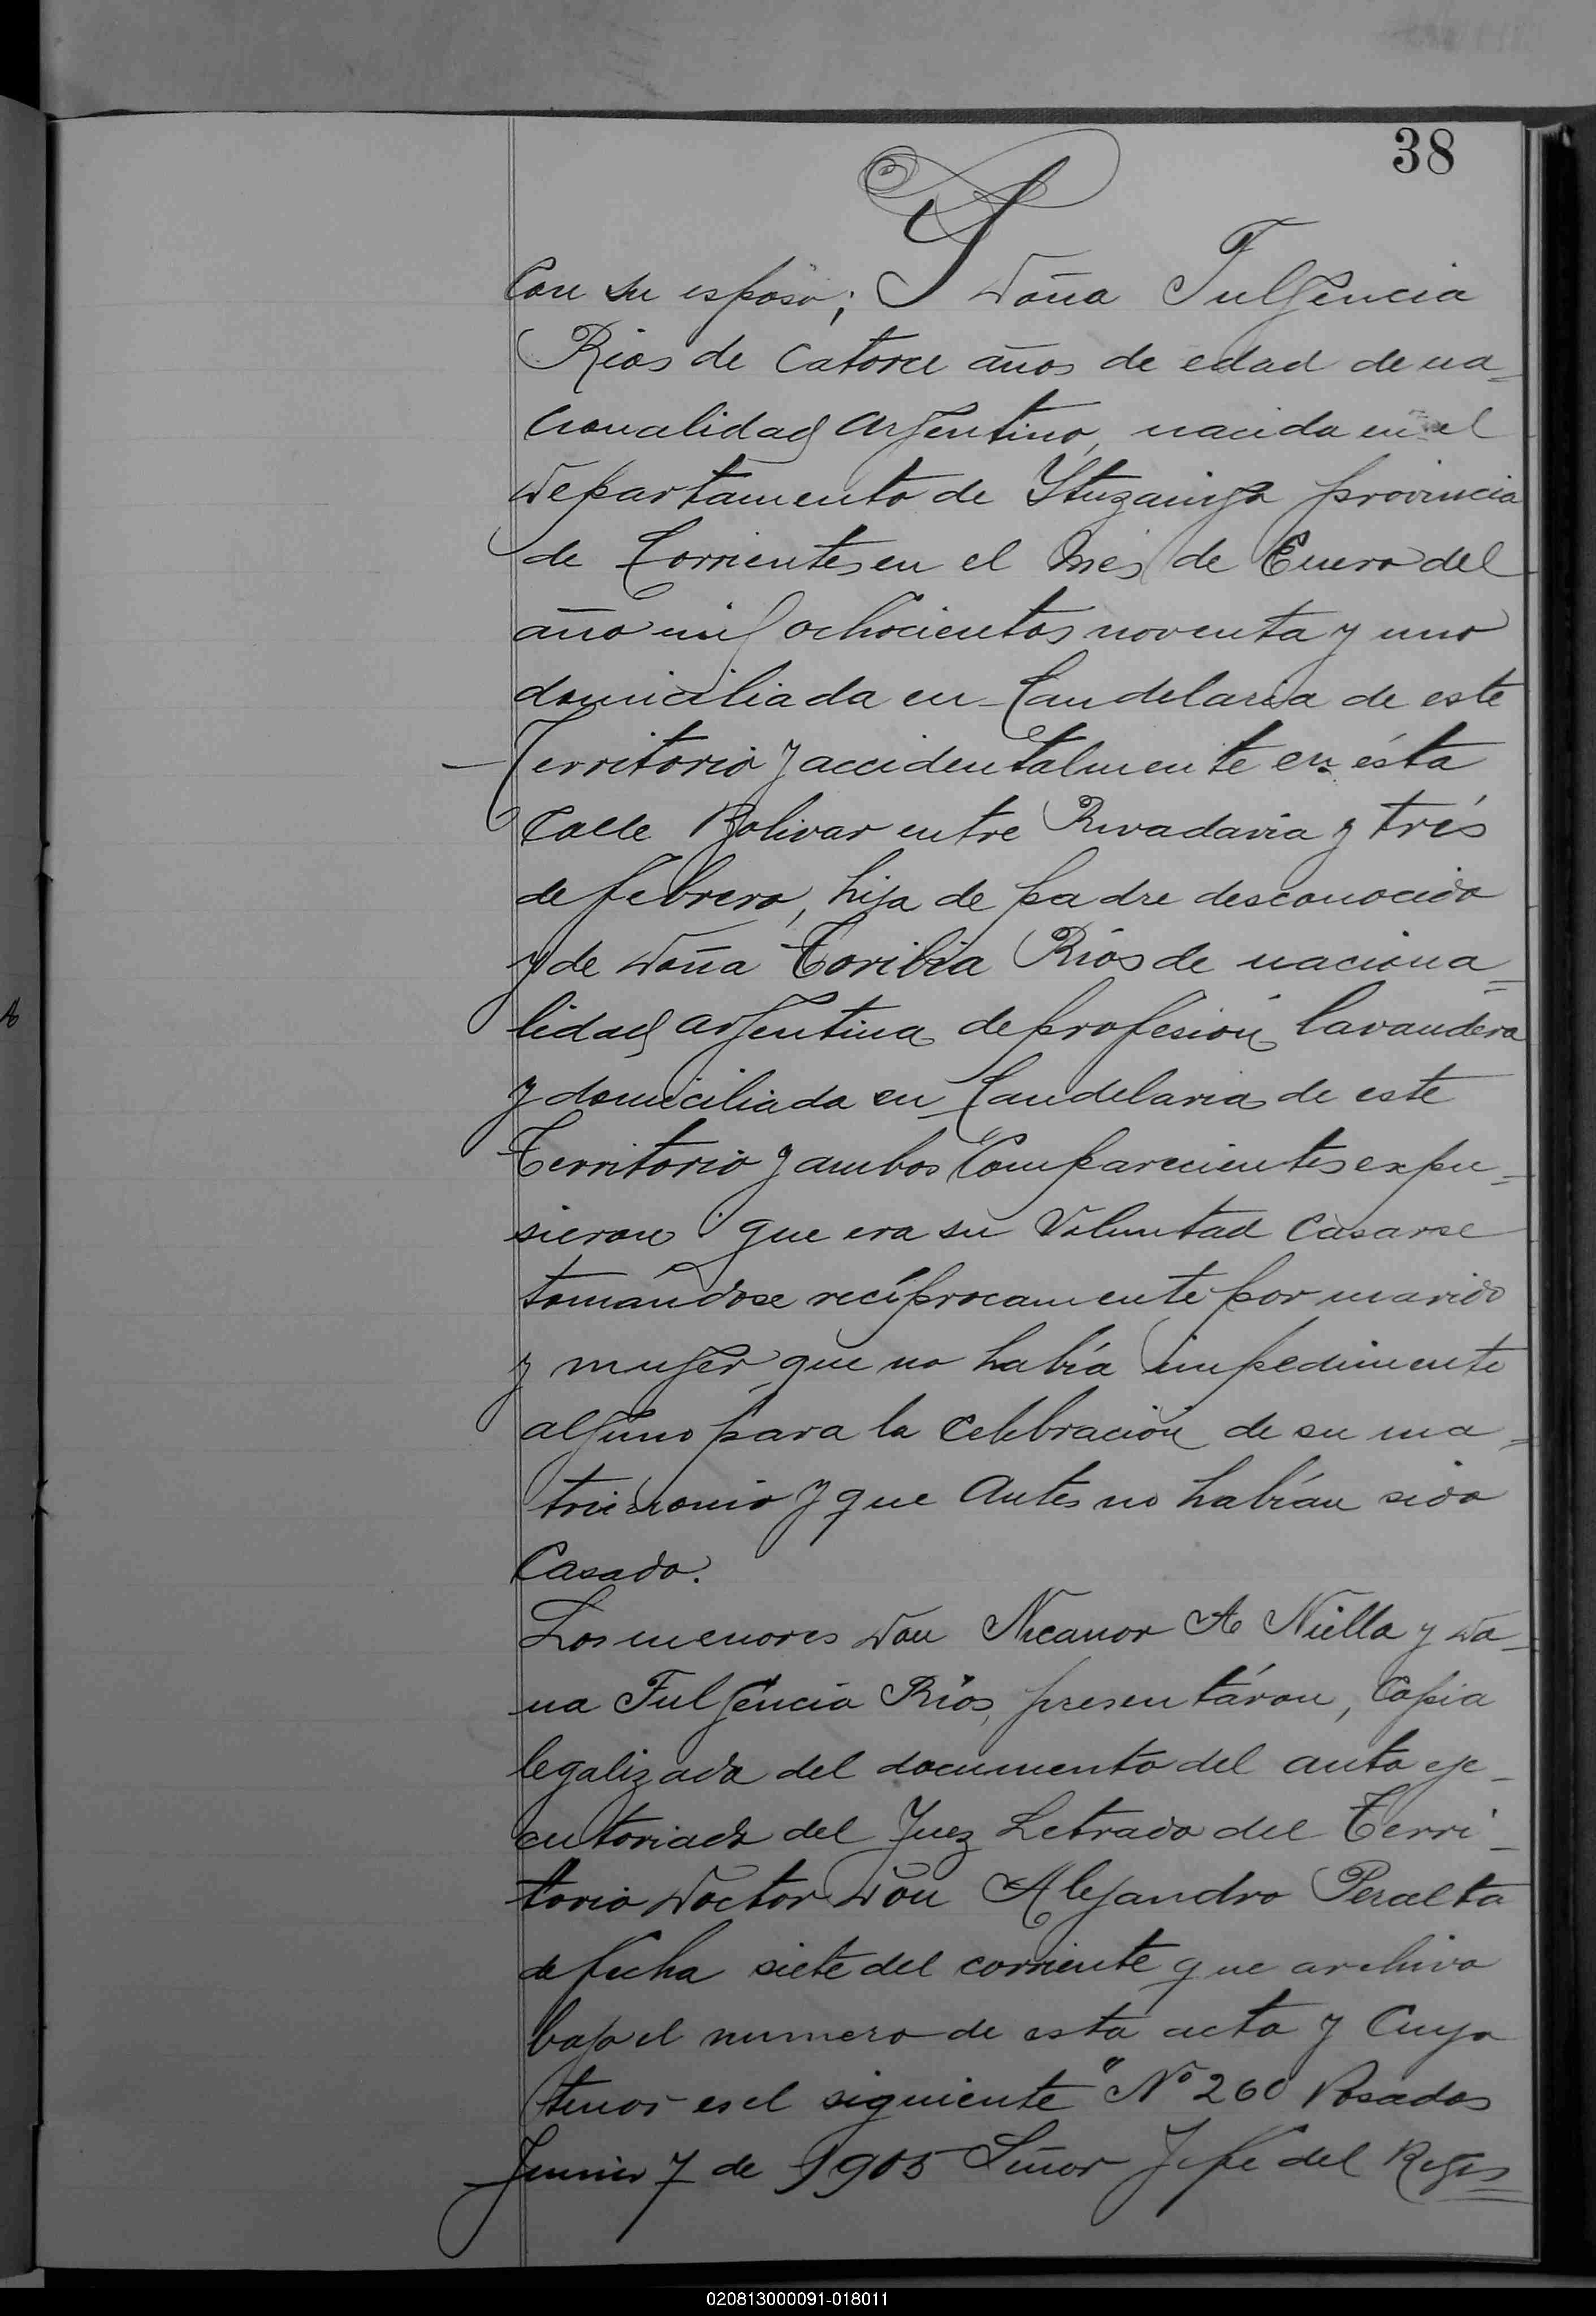 38
Con su esposo; Y Doña Fulgencia
Rios de catorce años de edad de na=
cionalidad argentino, nacida en el
Departamento de Ytuzaingo provincia
de Corrientes en el mes de Enero del
año mil ochocientos noventa y uno
domiciliada en Candelaria de este
Territorio y accidentalmente en ésta
Calle Bolivar entre Rivadavia y trés
de febrero, hija de padre desconocido
y de Doña Toribia Ríos de naciona=
lidad argentina de profesión lavandera
y domiciliada en Candelaria de este
Territorio y ambos Comparecientes expu=
sieron que era su Voluntad casarse
tomándose recíprocamente por marido
y mujer que no había impedimento
alguno para la Celebración de su ma=
trimonio y que Antes no habían sido
Casado.
Los menores Don Nicanor A Niella y Do=
na Fulgéncia Ríos, presentáron, Copia
legalizada del documento del auto eje-
cutoriado del Juez Letrado del Terri-
torio Doctor Don Alejandro Peralta
de fecha siete del corriente que archivo
bajo el numero de esta acta y Cuyo
tenor es el siguiente "Nº 260 Posadas
Junio 7 de 1905 Señor Jefe del Regis=
020813000091-018011